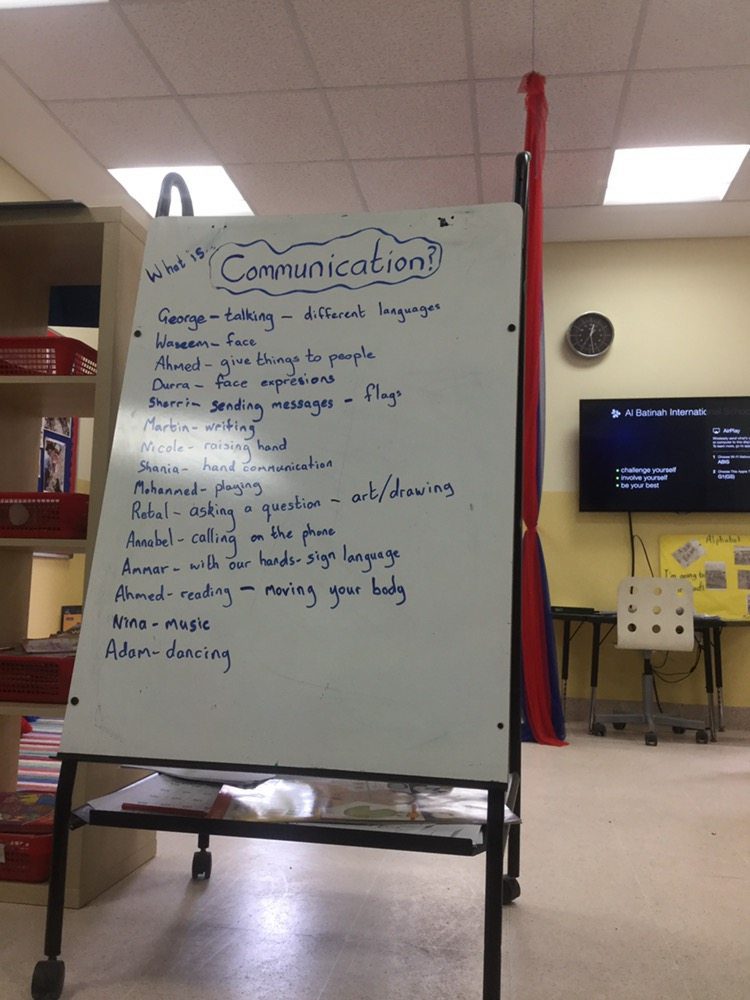 What is...
Communication?
George - talking - different languages
Waseem - face
Ahmed - give things to people
Durra - face expresions
Sherri - sending messages - flags
Martin - writing
Nicole - raising hand
Shania - hand communication
Mohanmed - playing
Retal - asking a question - art/drawing
Annabel - calling on the phone
Ammar - with our hands - sign language
Ahmed - reading - moving your body
Nina - music
Adam - dancing
Al Batinah International School
AirPlay
challenge yourself
involve yourself
be your best
Alphabet
I'm going to